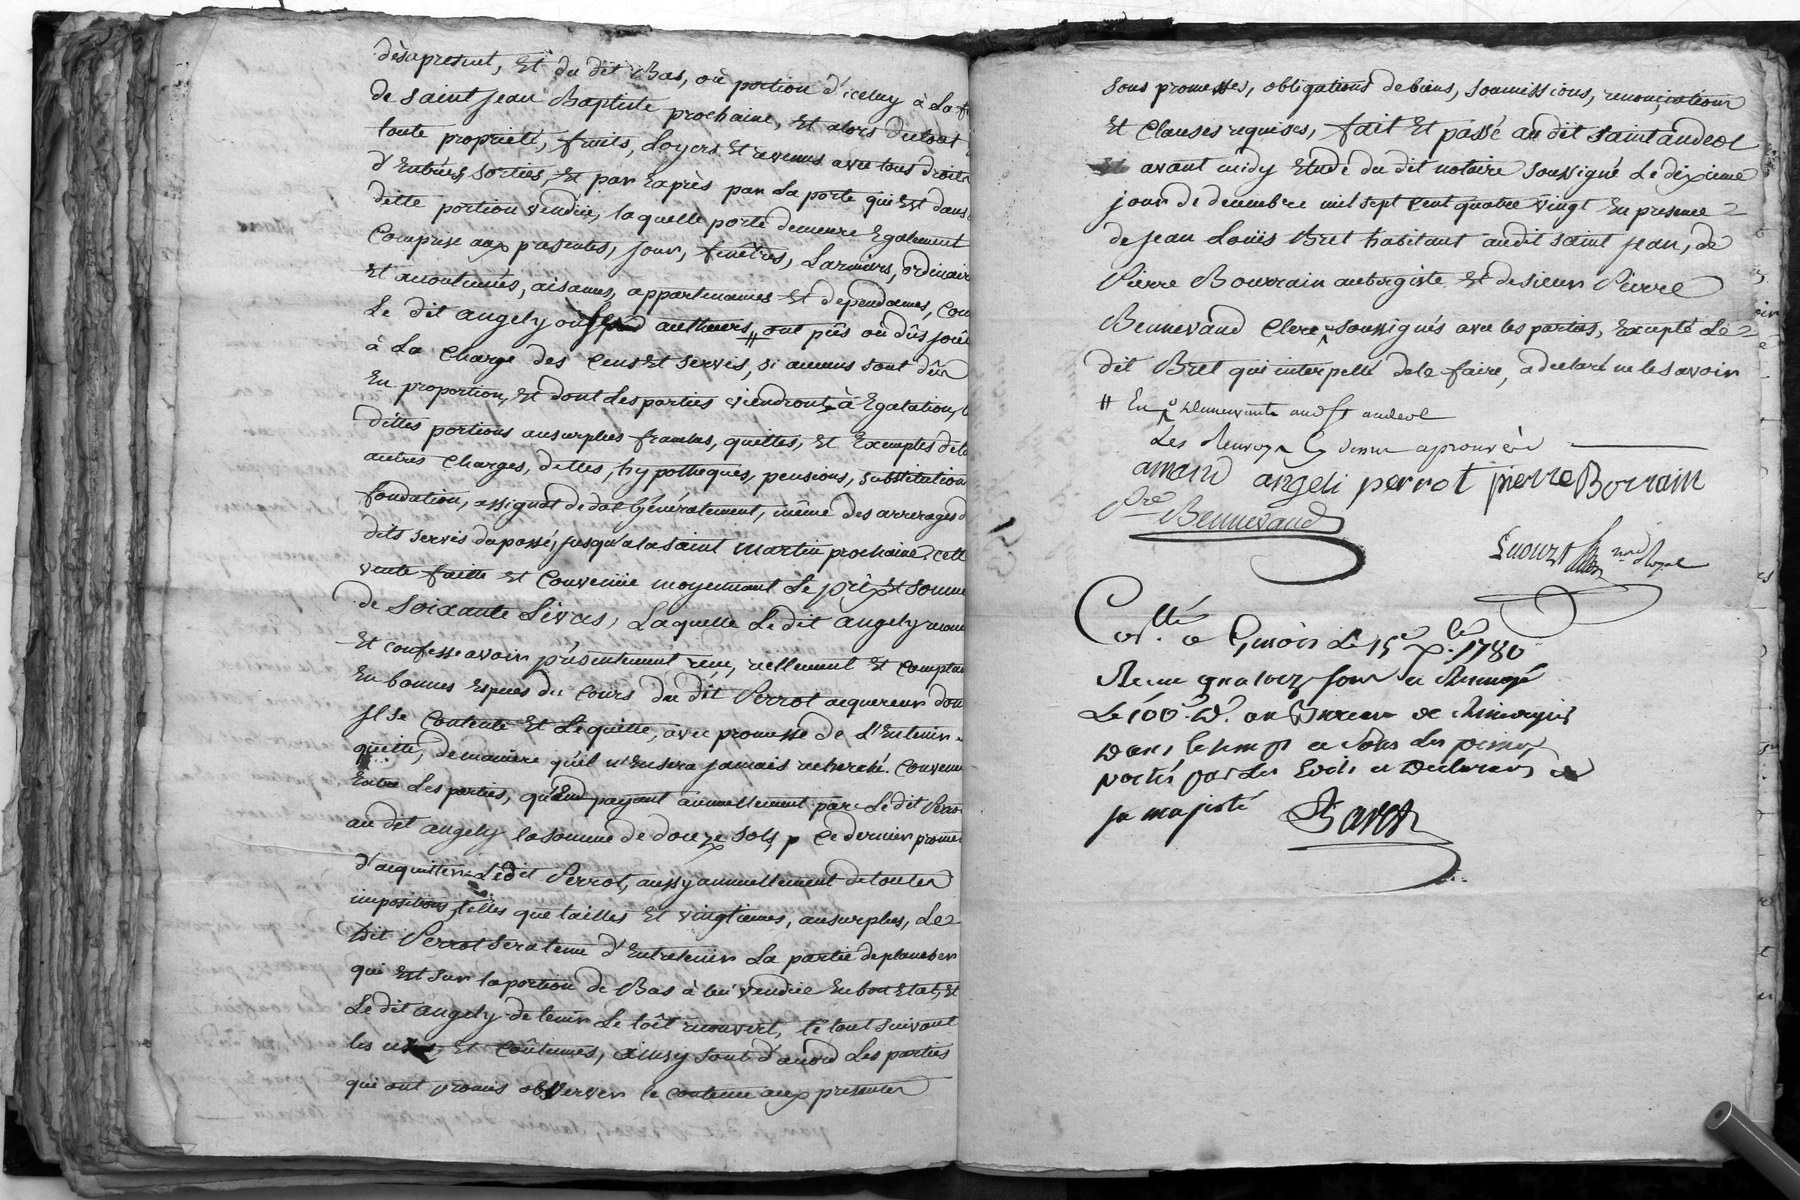 dèsapresent, Et du dit Bas, où portion d'iceluy à La
de saint jean Baptiste prochaine, Et alors du tout
toute proprieté, fruits, Loyers Et revenus avec tous droits
d'Entrées, sorties, Et par Exprès par La porte qui Est dans
ditte portion vendüe, laquelle porte demeure Egalement
Comprise aux presentes, jour, fenêtres, Larmiers, ordinaires
Et accoutumés, aisances, appartenances Et dependances, Com
Le dit angely ou autheurs ont pûs où dûs joüir
à La Charge des Cens Et servis, si aucuns sont dûs
En proportion, Et dont Les parties viendront à Egalation,
dittes portions au surplus franches, quittes, Et Exemptes de
autres Charges, dettes, hypotheques, pensions, substitutions
fondation, assignat de dot Généralement, même des arrerages d
dits servis du passé, jusqu'a la saint martin prochaine, cette
vente faitte Et Convenüe moyennant Le prix Et somme
de Soixante Livres, Laquelle Le dit angely
Et confesse avoir présentement reçu, reellement Et Comptant
En bonnes Espèces du Cours du dit Perrot acquereur dont
jl se Contente Et L'equitte, avec promesse de L'Entenir
quitte, de maniere qu'il n'En sera jamais recherché. Convenu
Entre Les parties, qu'En payant annuellement par Le dit Perrot
au dit angely la somme de douze sols, Ce dernier promet
d'acquitter Le dit Perrot, aussy annuellement de toutes
impositions, telles que tailles Et vingtiemes, au surplus, Le
Dit Perrot sera tenu d'Entretenir La partie de plancher
qui Est sur la portion de Bas à lui vendüe En bon Etat, Et
Le dit angely de tenir Le toît recouvert, le tout suivant
les us Et Coûtumes, ainsy sont d'acord Les parties
qui ont promis observer le Contenu aux presentes
sous promesses, obligations de biens, soumissions, renonciations
Et Clauses requises, fait Et passé au dit saint andeol
avant midy Etude du dit notaire soussigné Le dixieme
jour de decembre mil sept Cent quatre vingt En presence
de jean Loüis Bret habitant au dit saint jean, de
Pierre Bourrain aubergiste Et de sieur Pierre
Bennevand Clerc soussignés avec les parties, Excepté Le
dit Bret qui interpellé de le faire, a declaré ne le savoir
andeol
Les Renvoys aprouvés
amand angeli perrot pierre Borrain
Pre Bennevand
Collé a Givors Le 15e Xbre 1780
Reçu quatorze sous
Le 100e D. au Bureau de
dans le temps et sous les peines
portés par Les Edits et Declarations de
sa majesté